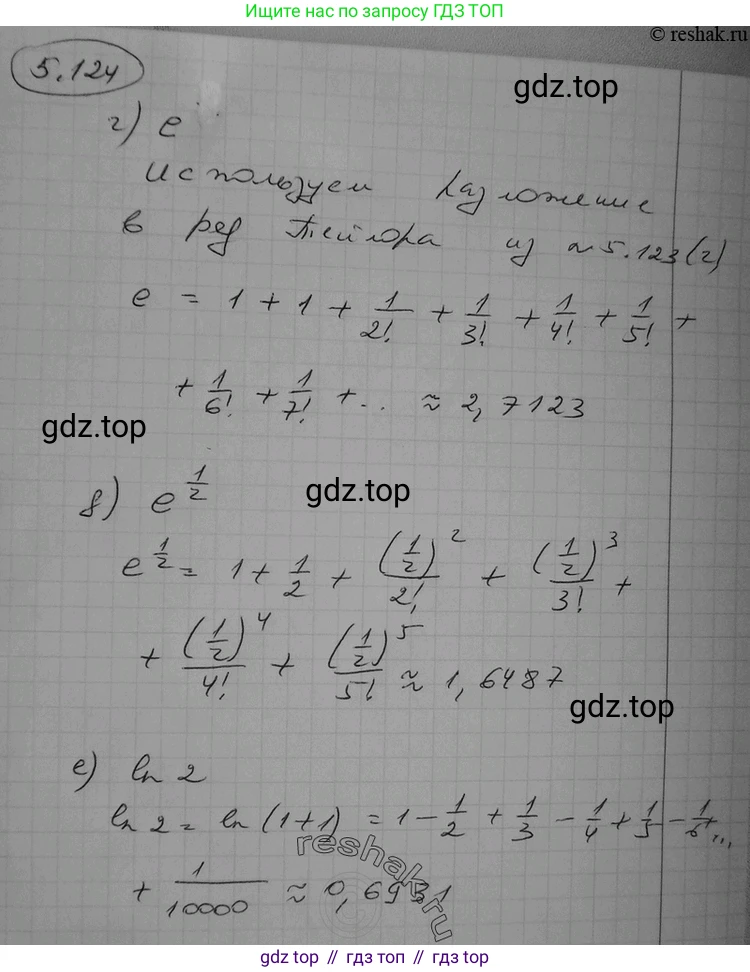 Ищите нас по запросу ГДЗ ТОП
© reshak.ru
5.124
gdz.top
г) e
Используем разложение
в ряд Тейлора из №5.123(г)
e = 1 + 1 + 1/2! + 1/3! + 1/4! + 1/5! +
+ 1/6! + 1/7! + ... ≈ 2,7123
gdz.top
д) e^(1/2)
gdz.top
e^(1/2) = 1 + 1/2 + (1/2)^2/2! + (1/2)^3/3! +
+ (1/2)^4/4! + (1/2)^5/5! ≈ 1,6487
gdz.top
е) ln 2
ln 2 = ln (1+1) = 1 - 1/2 + 1/3 - 1/4 + 1/5 - 1/6 ...
+ 1/10000 ≈ 0,6931
reshak.ru
gdz.top // гдз.топ // gdz.top // гдз.топ